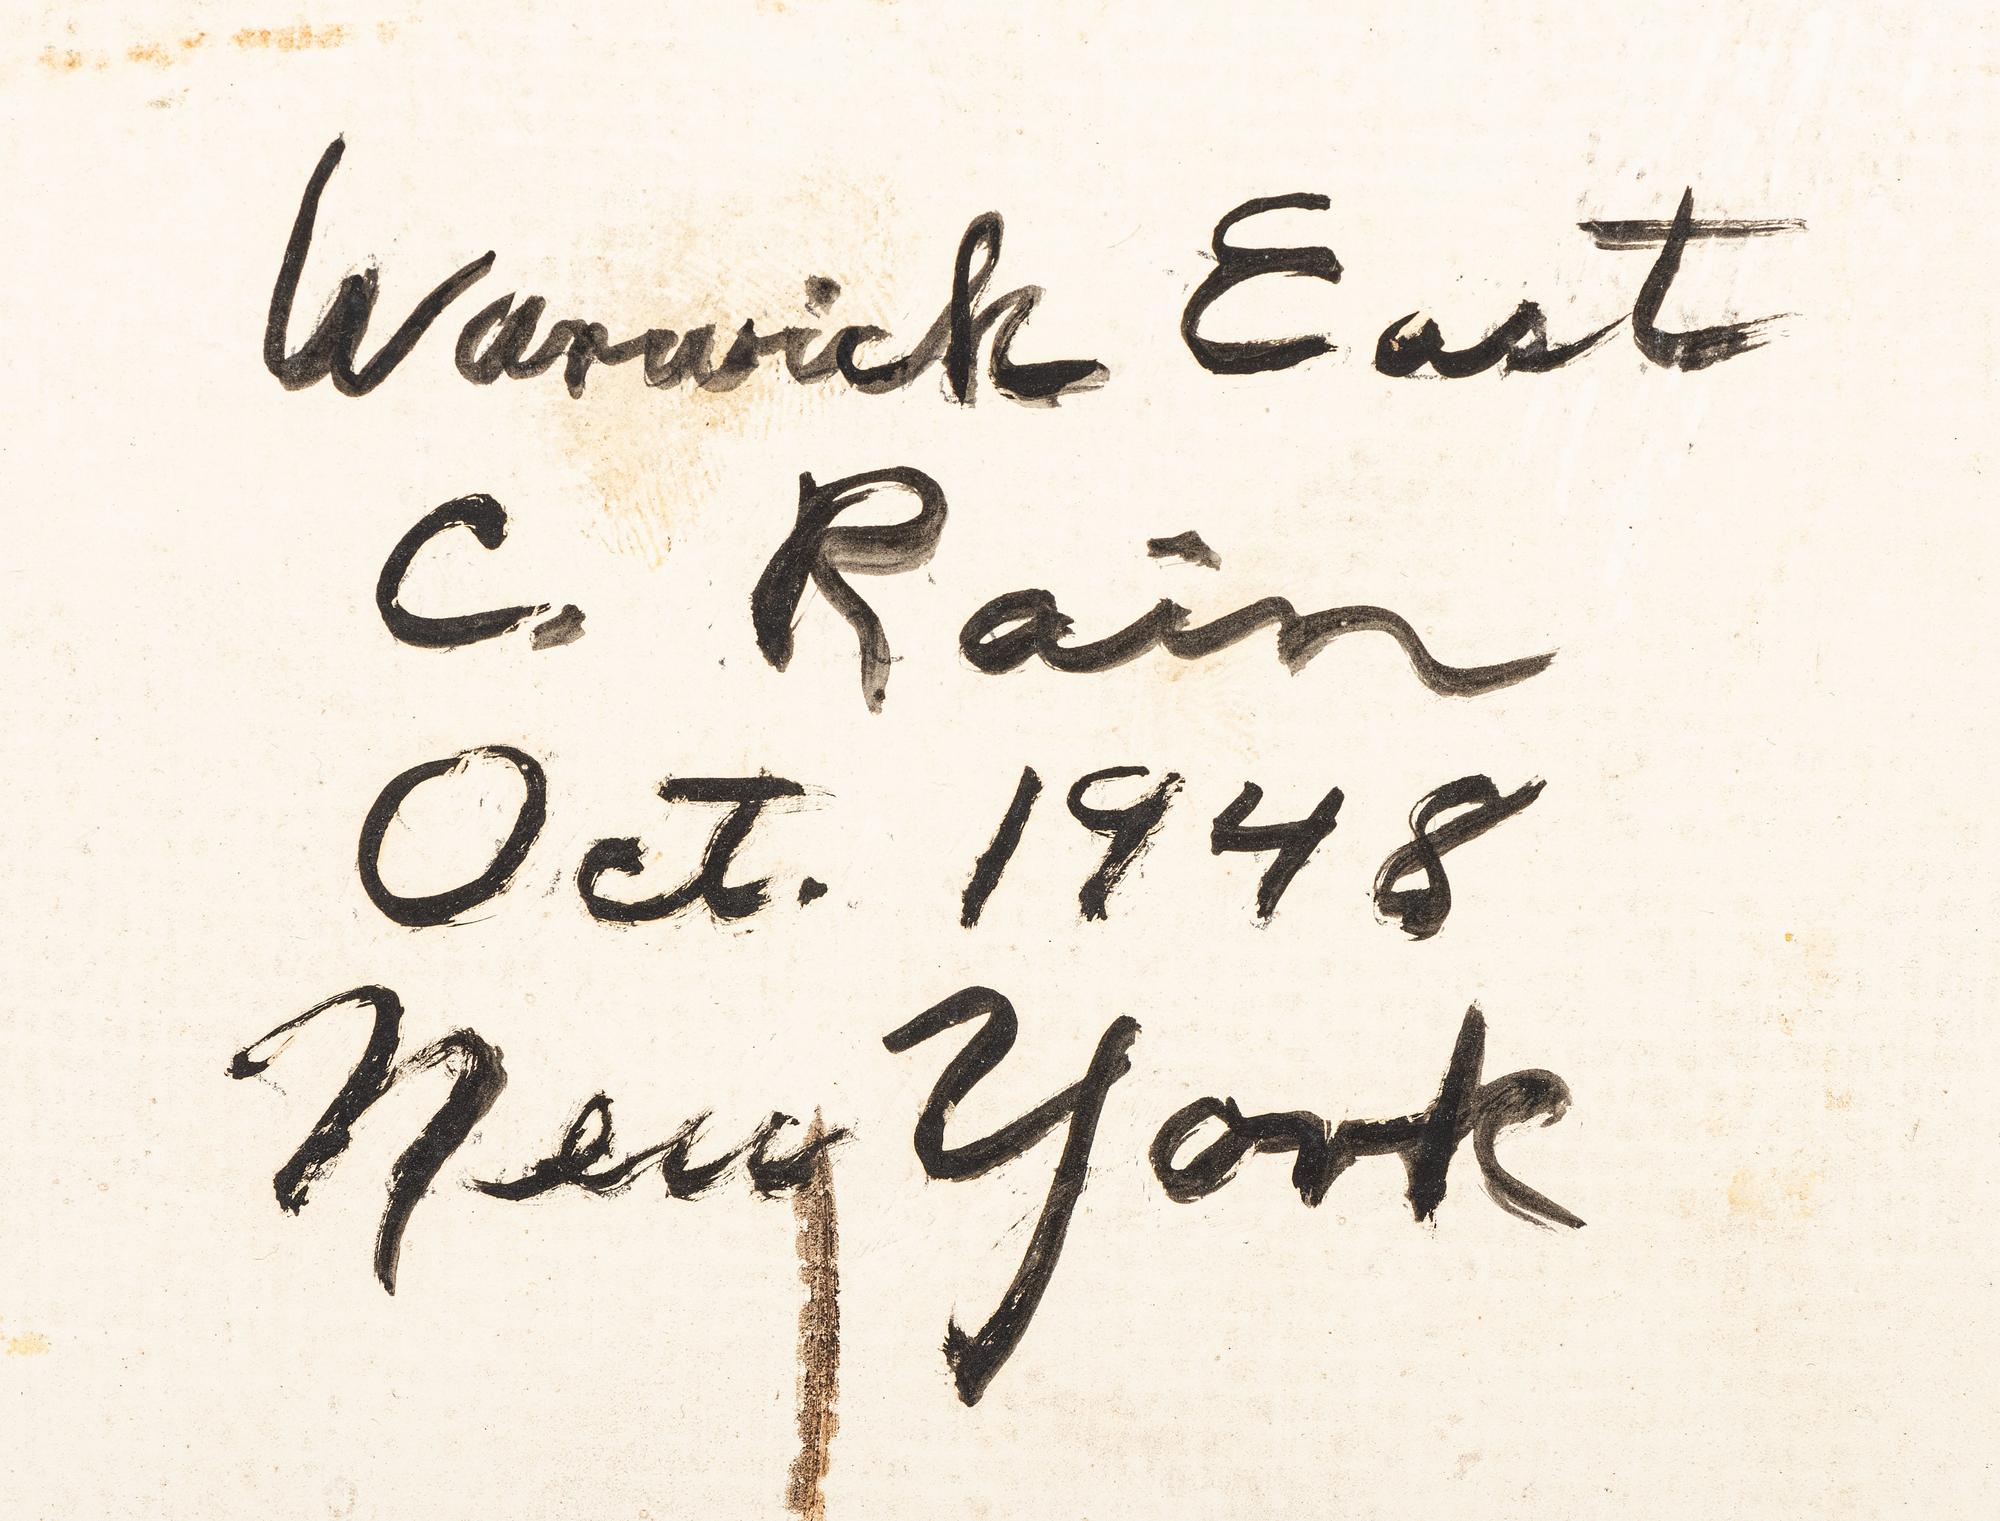 Warwick East
C. Rain
Oct. 1948
New York